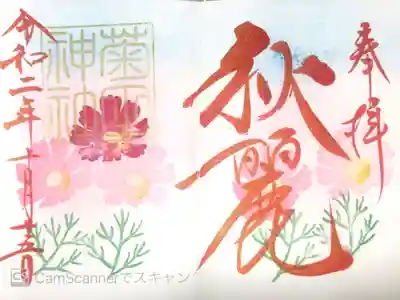 奉拝
秋麗
令和二年十月十五日
CamScannerでスキャン